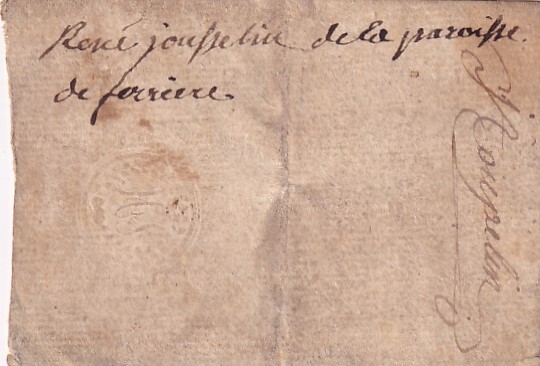 René jousselin de la paroisse
de ferriere